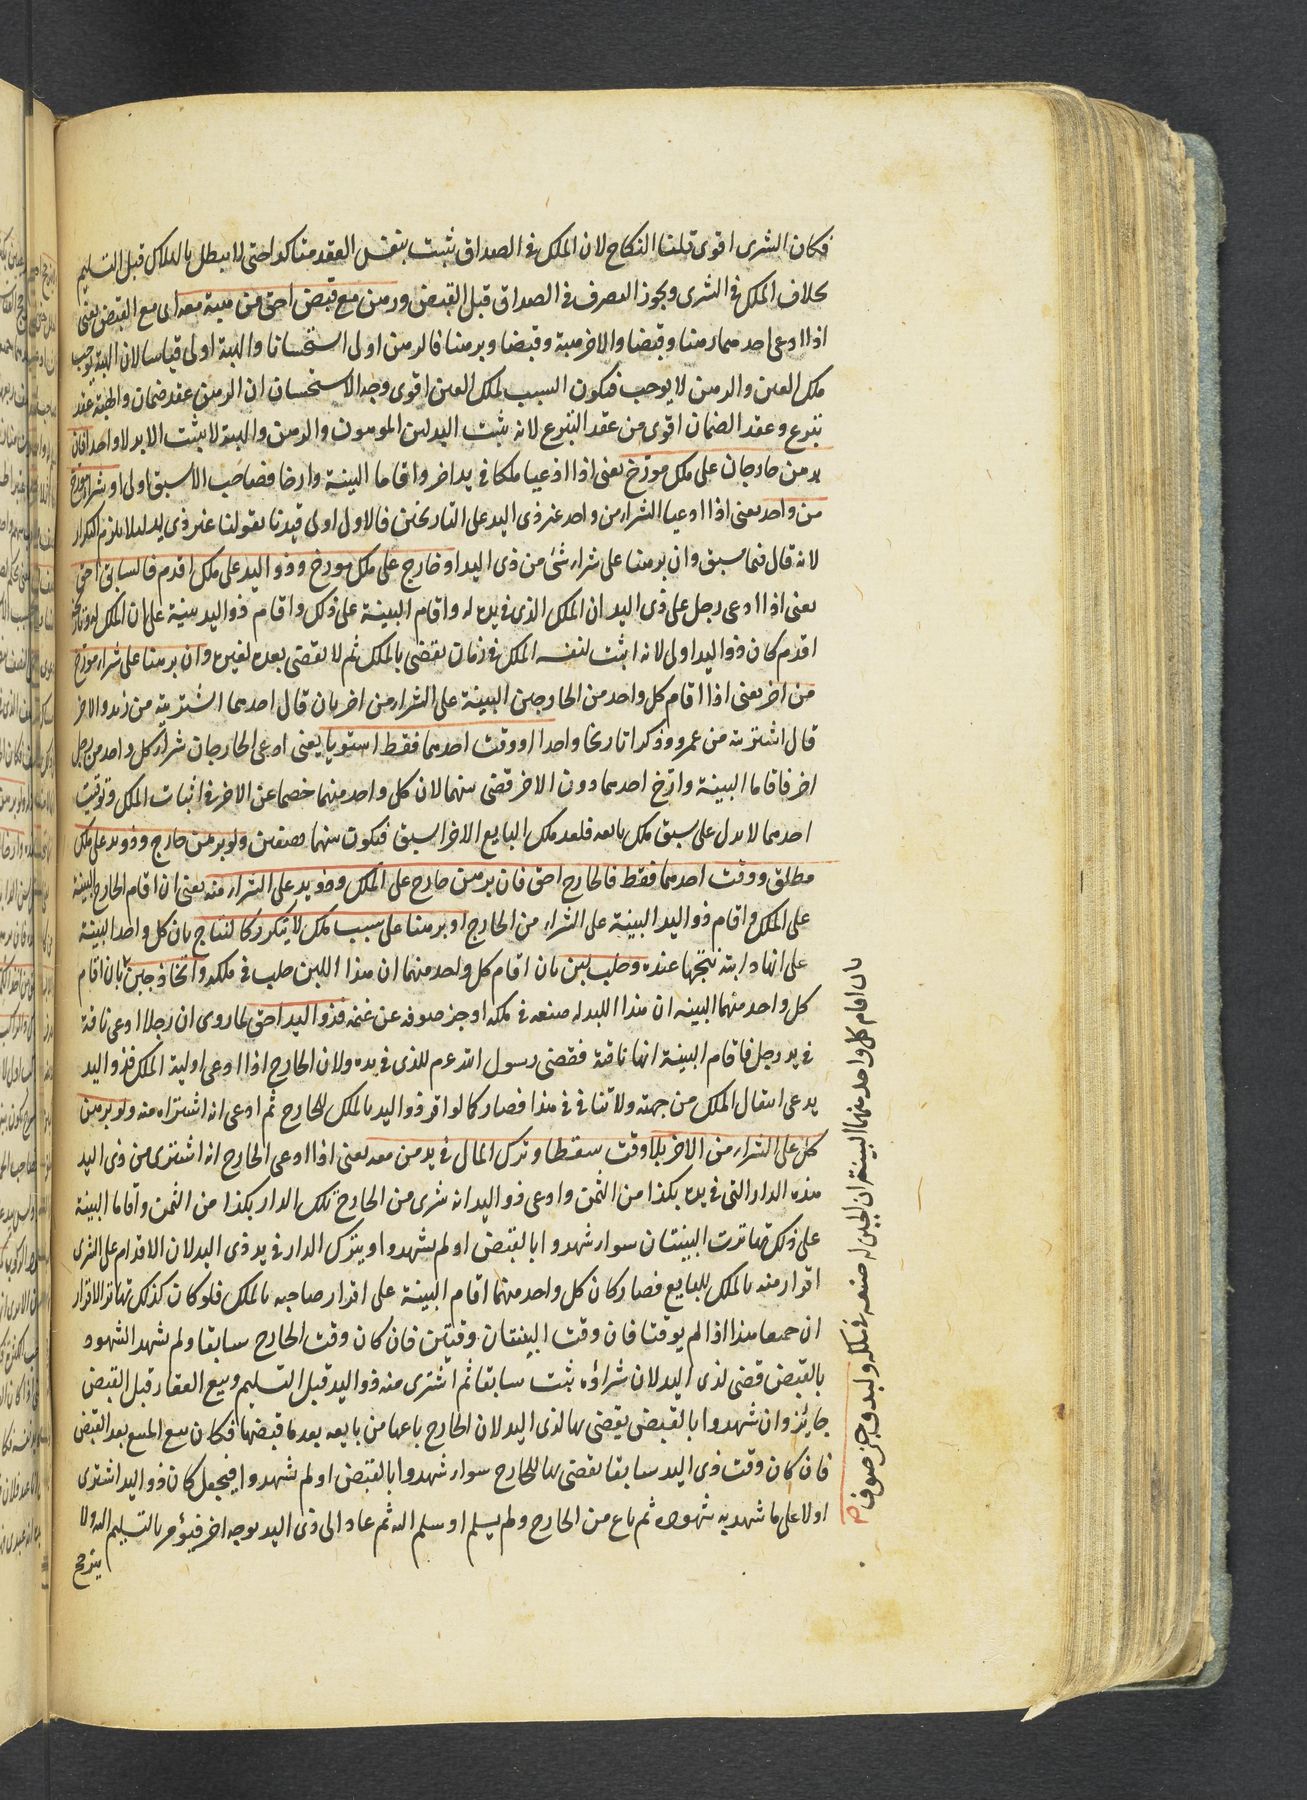 فكان الشرى اقوى قلنا النكاح لان الملك في الصداق ثبت بنفس العقد متاكدا حتى لا يبطل بالهلاك قبل التسليم
بخلاف الملك في الشرى ويجوز التصرف في الصداق قبل القبض ورهن مع قبض احق من هبة معه اى مع القبض يعنى
اذا ادعى احدهما رهنا وقبضا والاخر هبة وقبضا وبرهنا فالرهن اولى استحسانا والهبة اولى قياسا لان الهبة توجب
ملك العين والرهن لا يوجب فيكون السبب لملك العين اقوى وجه الاستحسان ان الرهن عقد ضمان والهبة عقد
تبرع وعقد الضمان اقوى من عقد التبرع لانه يثبت البدلين المرهون والدين والهبة لا يثبت الا بدلا واحدا فان
برهن خارجان على ملك مورخ يعنى اذا ادعيا ملكا في يد اخر واقاما البينة وارخا فصاحب الاسبق اولى او شراء مورخ
من واحد يعنى اذا ادعيا الشراء من واحد غير ذى اليد على التاريخين فالاول اولى قيدنا بقولنا غير ذى يد لئلا يلزم التكرار
لانه قال فيما سبق وان برهنا على شراء شئ من ذى اليد او خارج على ملك مورخ وذو اليد على ملك اقدم فالسابق احق
يعنى اذا ادعى رجل على ذى اليد ان الملك الذى في يده له واقام البينة على ذلك واقام ذو اليد بينة على ان الملك له وتاريخه
اقدم كان ذو اليد اولى لانه اثبت لنفسه الملك في زمان يقضى بالملك ثم لا يقضى بعده لغيره وان برهنا على شراء مورخ
من اخر يعنى اذا اقام كل واحد من الخارجين البينة على الشراء من اخر بان قال احدهما اشتريته من زيد والاخر
قال اشتريته من عمرو وذكرا تاريخا واحدا او وقت احدهما فقط استويا يعنى ادعى الخارجان شراء كل واحد من رجل
اخر فاقاما البينة وارخ احدهما دون الاخر قضى بينهما لان كل واحد منهما خصما عن الاخر في اثبات الملك وتوقيت
احدهما لا يدل على سبق ملك بايعه فلعل ملك البايع الاخر اسبق فيكون بينهما نصفين ولو برهن خارج وذو يد على ملك
مطلق ووقت احدهما فقط فالخارج احق فان برهن خارج على الملك وذو يد على الشراء منه يعنى ان اقام الخارج البينة
على الملك واقام ذو اليد البينة على الشراء من الخارج او برهنا على سبب ملك لا يتكرر كالنتاج بان كل واحد البينة
على انها دابته نتجها عنده وحلب لبن بان اقام كل واحد منهما ان هذا اللبن حلب في ملكه واتخاذ جبن بان اقام
كل واحد منهما البينه ان هذا اللبد له صنعه في ملكه او جز صوفه عن غنمه فذو اليد احق لما روى ان رجلا ادعى ناقة
في يد رجل فاقام البينة انها ناقته فقضى رسول الله عم للذى في يده ولان الخارج اذا ادعى اولية الملك فذو اليد
يدعى انتقال الملك من جهته ولا تنافى في هذا فصار كما لو اقر ذو اليد بالملك للخارج ثم ادعى انه اشتراه منه ولو برهن
كل على الشراء من الاخر بلا وقت سقطا وترك المال في يد من معه يعنى اذا ادعى الخارج انه اشترى من ذى اليد
هذه الدار التى في يده بكذا من الثمن وادعى ذو اليد انه شرى من الخارج تلك الدار بكذا من الثمن واقاما البينة
على ذلك تهاترت البينتان سواء شهدوا بالقبض او لم يشهدوا ويترك الدار في يد ذى اليد لان الاقدام على الشرى
اقرار منه بالملك للبايع فصار كان كل واحد منهما اقام البينة على اقرار صاحبه بالملك فلو كان كذلك تهاتر الاقرار
ان جميعا هذا اذا لم يوقتا فان وقت البينتان وقتين فان كان وقت الخارج سابقا ولم يشهد الشهود
بالقبض قضى لذى اليد لان شراؤه ثبت سابقا ثم اشترى منه ذو اليد قبل التسليم وبيع العقار قبل القبض
جايز وان شهدوا بالقبض يقضى بها لذى اليد لان الخارج باعها من بايعه بعد ما قبضها فكان بيع المبيع بعد القبض
فان كان وقت ذى اليد سابقا يقضى بها للخارج سواء شهدوا بالقبض او لم يشهدوا فيجعل كان ذو اليد اشترى
اولا على ما شهد به شهوده ثم باع من الخارج ولم يسلم او سلم اليه ثم عاد الى ذى اليد بوجه اخر فيؤمر بالتسليم اليه ولا
يترجح
بان اقام كل واحد منهما البينة ان الجبن له صنعه في ملكه ولبد وجز صوف